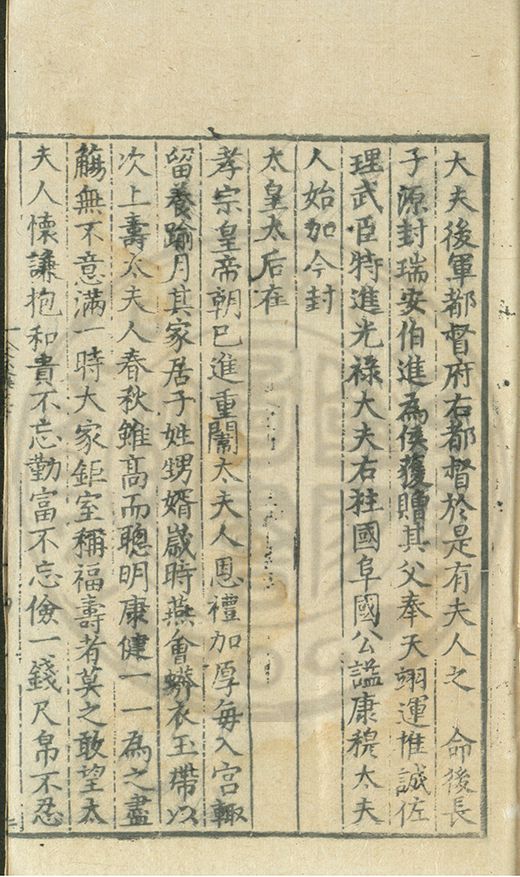 大夫後軍都督府右都督於是有夫人之　命後長
子源封瑞安伯進為侯獲贈其父奉天翊運推誠佐
理武臣特進光祿大夫右柱國阜國公諡康穆太夫
人始加今封
太皇太后在
孝宗皇帝朝已進重闈太夫人恩禮加厚每入宮輒
留養踰月其家居子姓甥婿歲時燕會蟒衣玉帶以
次上壽太夫人春秋雖高而聰明康健一一為之盡
觴無不意滿一時大家鉅室稱福壽者莫之敢望太
夫人懷謙抱和貴不忘勤富不忘儉一錢尺帛不忍